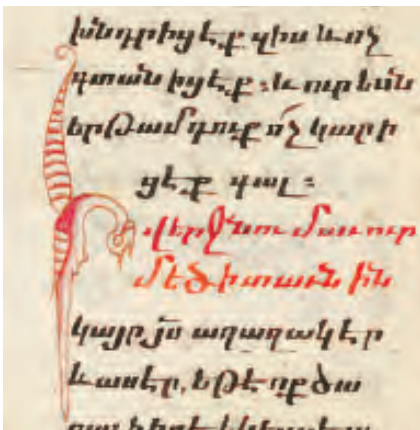 խնդրիցէք զիս և ոչ
գտանիցէք։ և ուր եսն
երթամ դուք ո՛չ կարի
ցէք գալ։
Ի վերջնում աւուր
մեծի տաւնին
կայր յս աղաղակէր
և ասէր, եթէ ոք ծա